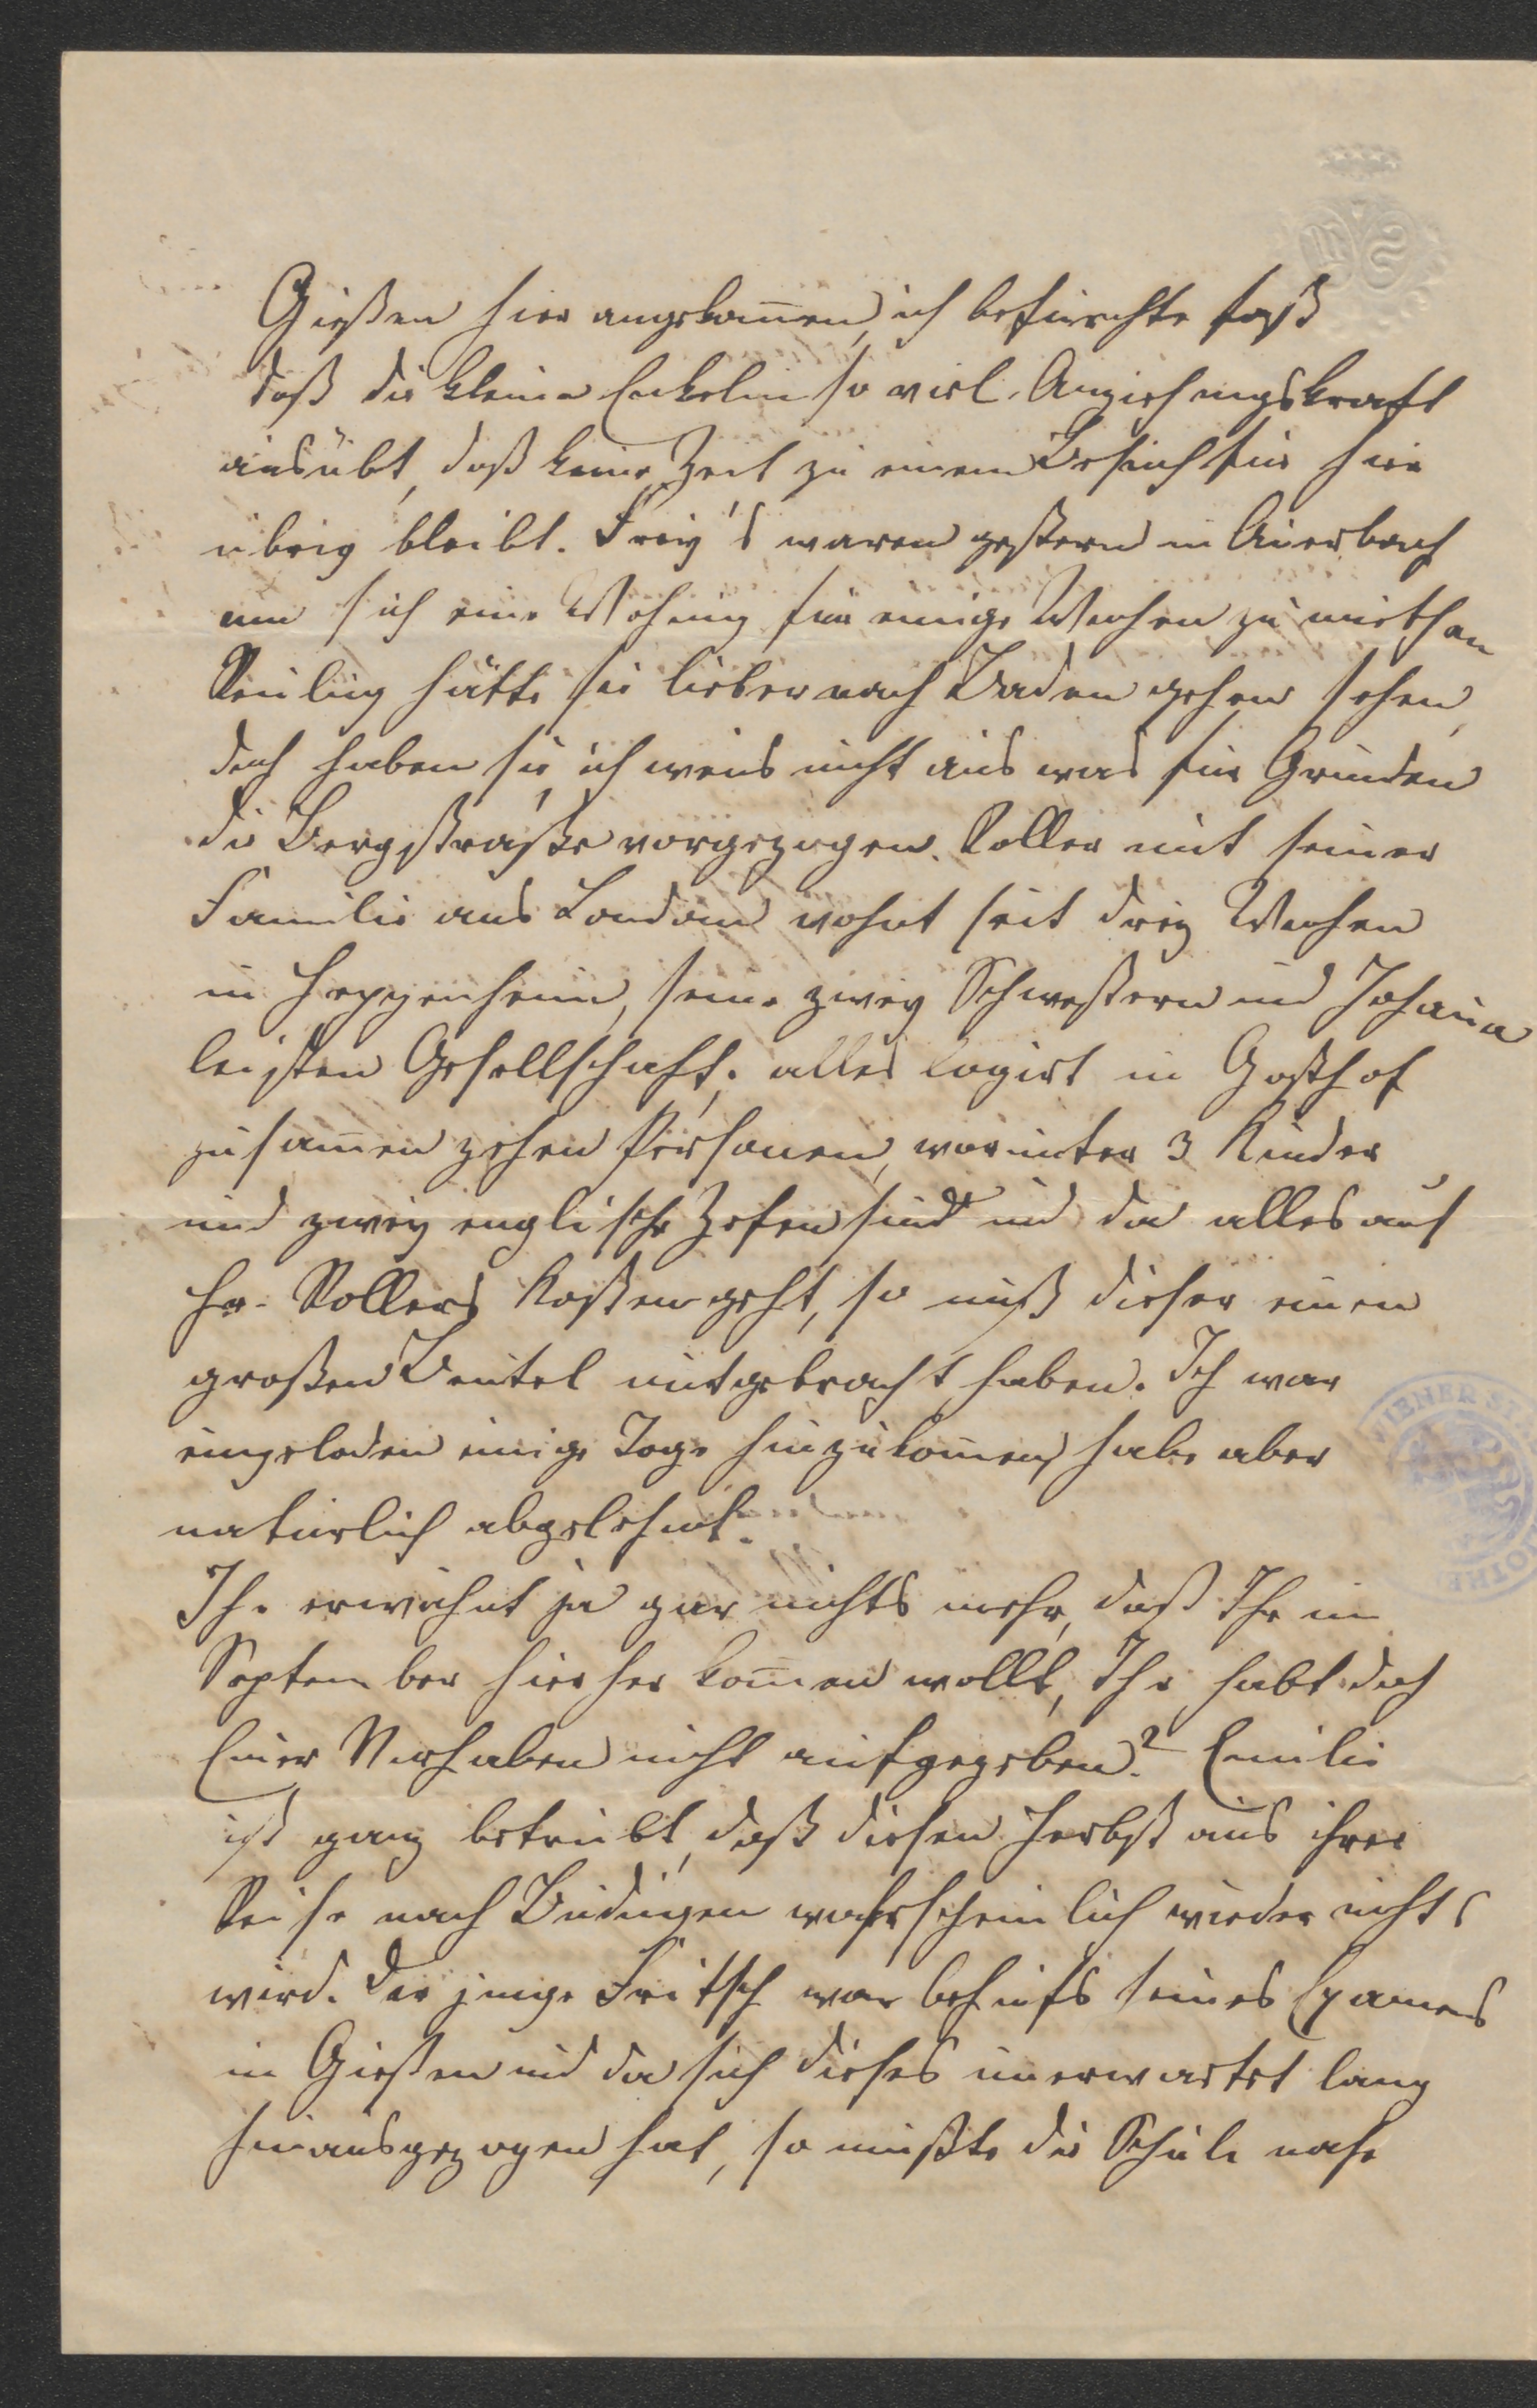 Gießen hier angekom̅en, ich befürchte fast
daß die kleine Enkelin so viel Anziehungskraft
ausübt, daß keine Zeit zu einem Besuch für hier
übrig bleibt. Frey's waren gestern in Auerbach
um sich eine Wohnung für einige Wochen zu miethen
Reuling hätte sie lieber nach Baden gehen sehen,
doch haben sie, ich weis nicht aus was für Gründen
die Bergstraße vorgezogen. Roller mit seiner
Familie aus London wohnt seit drey Wochen
in Heppenheim, seine zwey Schwestern und Johanna
leisten Gesellschaft, alles logirt in Gasthof
zusam̅en zehen Personen, worunter 3 Kinder
und zwey englische Zofen sind und da alles auf
Hr. Rollers Kosten geht, so muß dieser einen
großen Beutel mitgebracht haben. Ich war
eingeladen einige Tage hinzukom̅en, habe aber
natürlich abgelehnt.
Ihr erwähnt ja gar nichts mehr, daß Ihr im
September hierher kom̅en wollt, Ihr habt doch
Euer Vorhaben nicht aufgegeben? Emilie
ist ganz betrübt, daß diesen Herbst aus ihrer
Reise nach Büdingen wahrscheinlich wieder nichts
wird. Der junge Fritsch war behufs seines Examens
in Gießen und da sich dieses unerwartet lang
hinausgezogen hat, so mußte die Schule nahe
WIENER ST